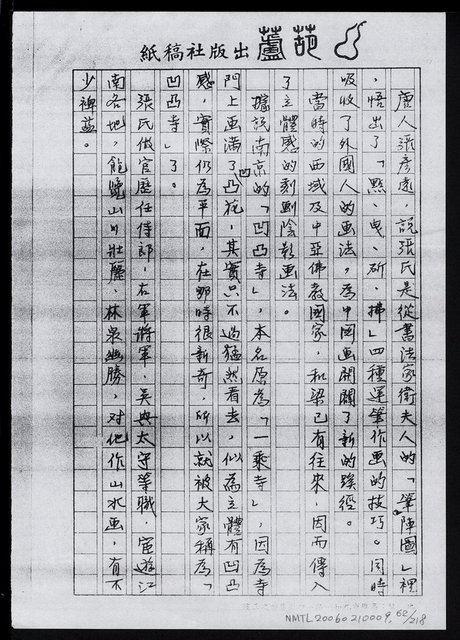 紙稿社版出蘆葫
唐人張彥遠，說張氏是從書法家衛夫人的「筆陣圖」裡
，悟出了「點、曳、斫、拂」四種運筆作画的技巧。同時
吸收了外國人的画法，為中國画開闢了新的蹊徑。
當時的西域及中亞佛教國家，和梁已有往來，因而傳入
了立體感的刻劃陰影画法。
據說南京的「凹凸寺」，本名原為「一乘寺」，因為寺
門上画滿了凹凸花，其實只不過猛然看去，似為立體有凹凸
感，實際仍為平面，在那時很新奇，所以就被大家稱為「
凹凸寺」了。
張氏做官歷任侍郎，右軍將軍，吳興太守等職，宦遊江
南各地，飽覽山川壯麗，林泉幽勝，對他作山水画，有不
少裨益。
NMTL20060210009 62/218